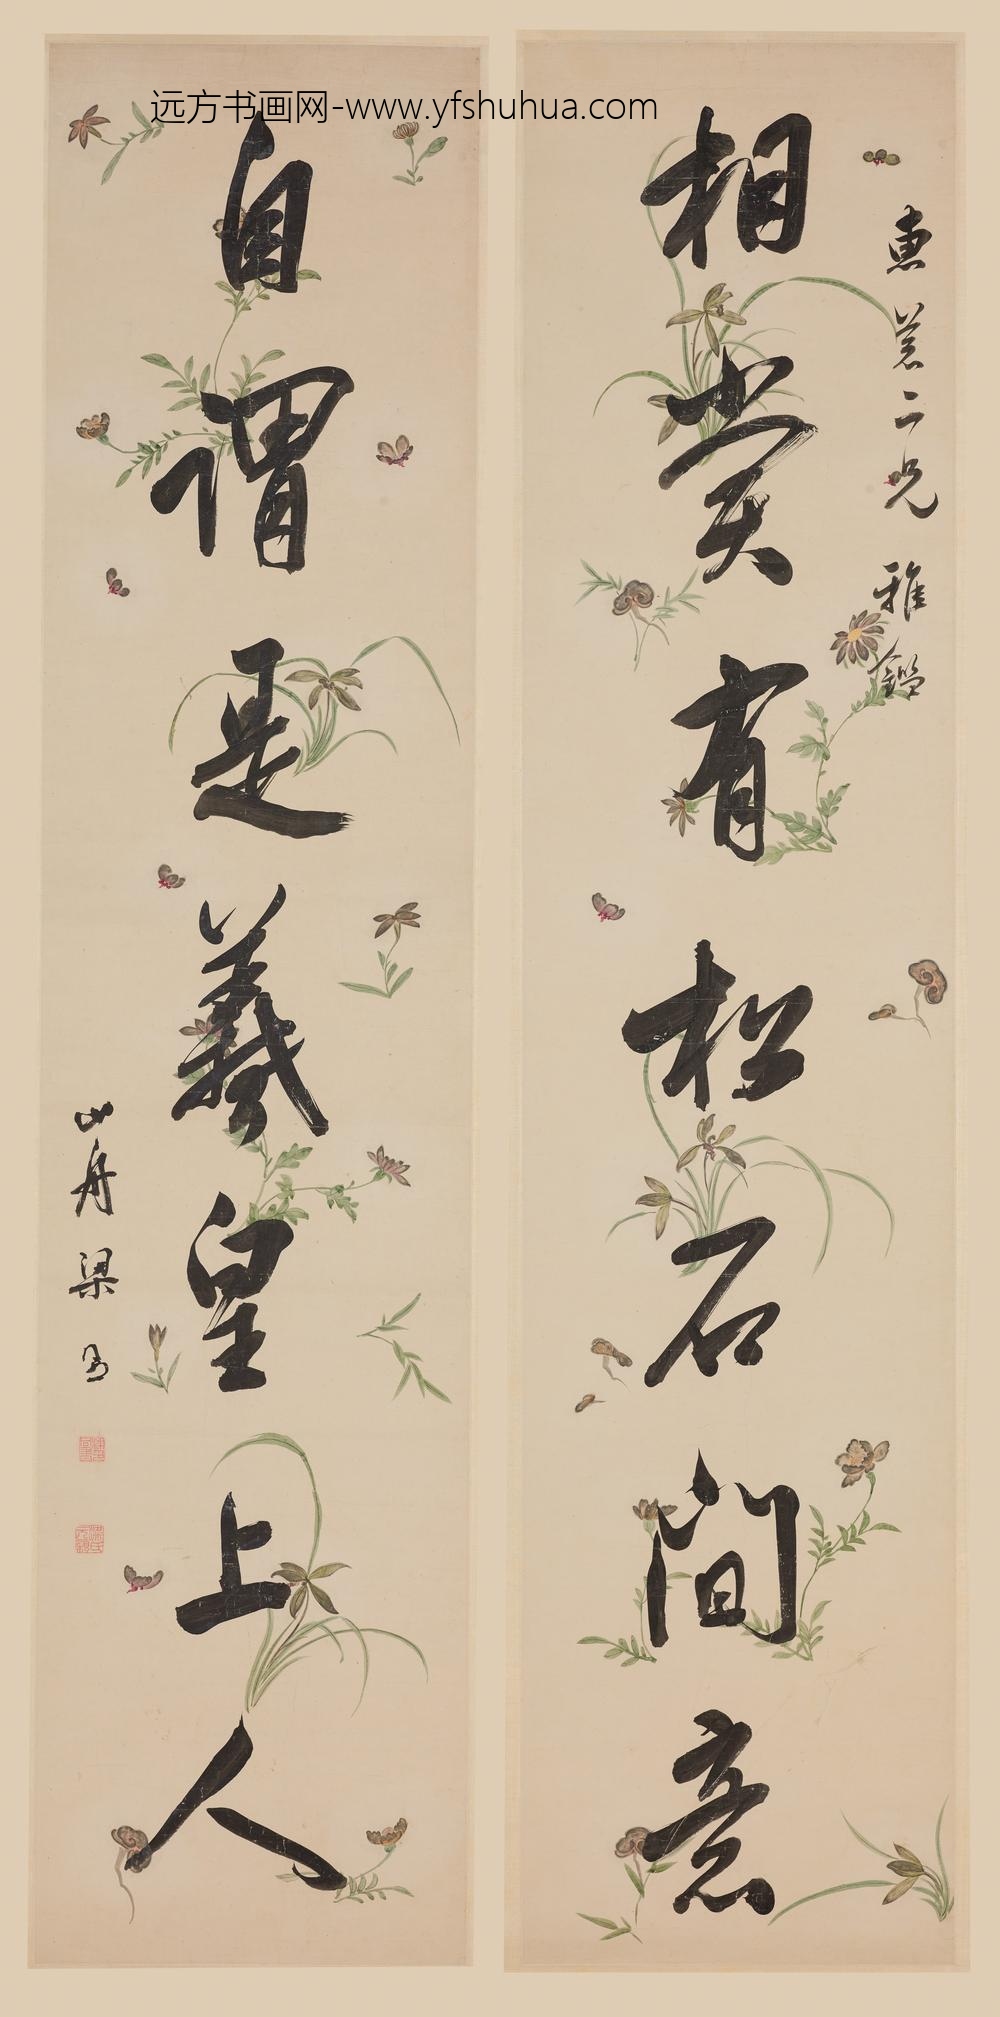 远方书画网-www.yfshuhua.com
惠荖二兄雅鑑
相赏有松石间意
自谓是羲皇上人
山舟梁